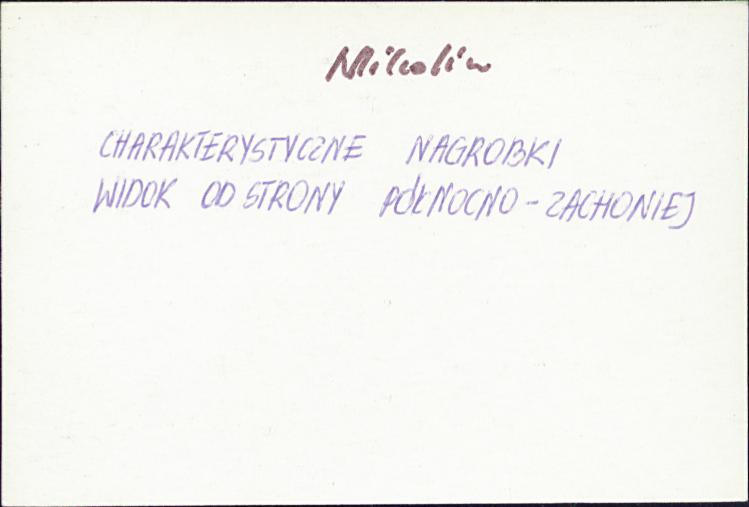 Mikołów
CHARAKTERYSTYCZNE NAGROBKI
WIDOK OD STRONY PÓŁNOCNO-ZACHONIEJ